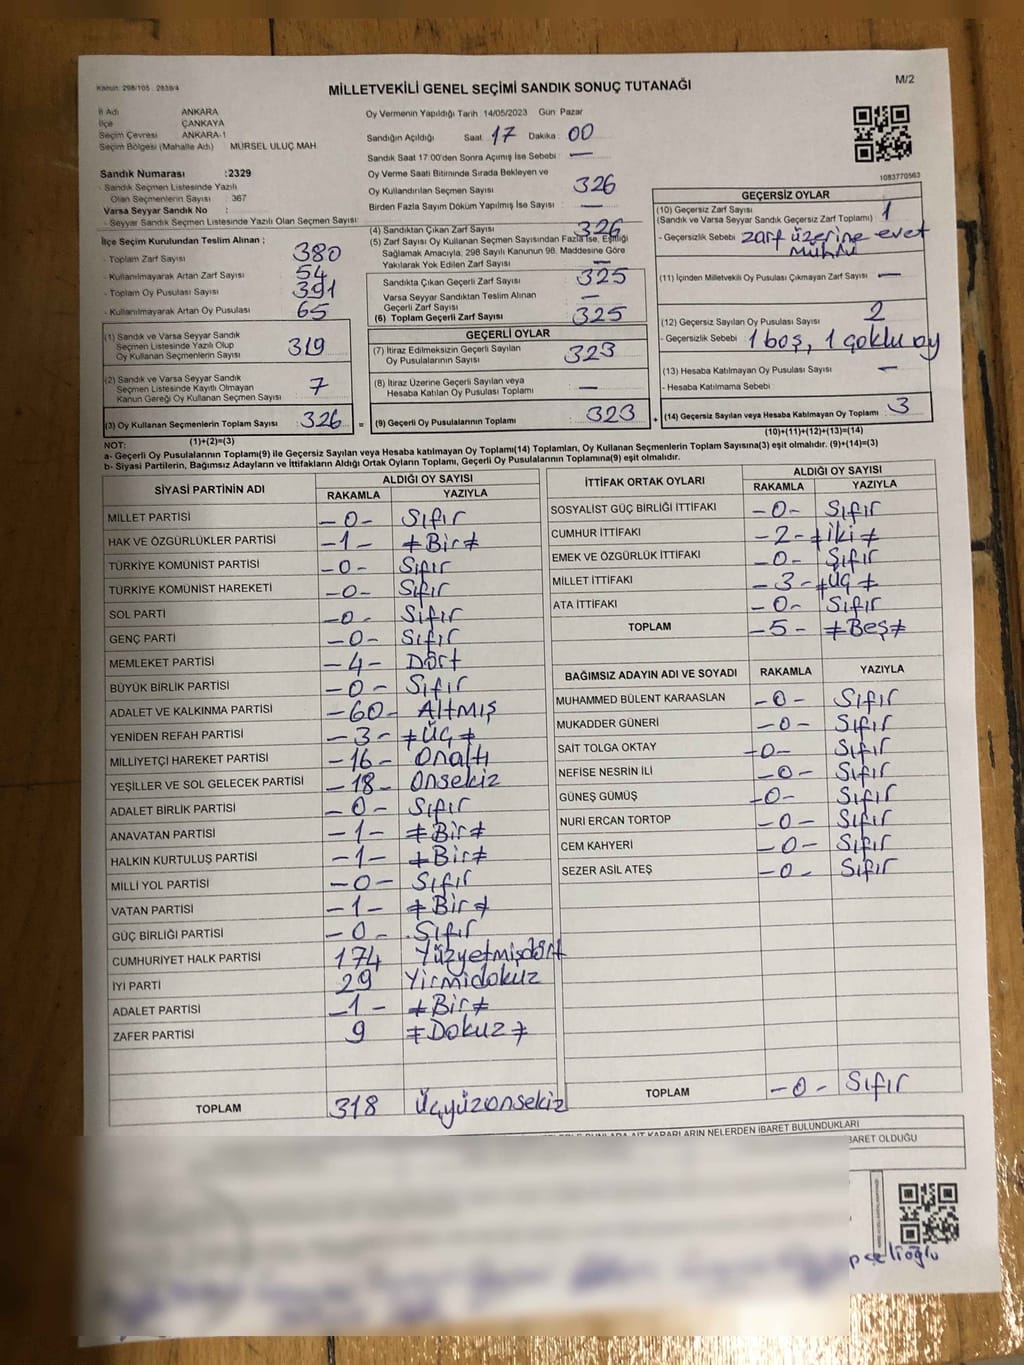 Kanun: 298/105 . 2839/4
MİLLETVEKİLİ GENEL SEÇİMİ SANDIK SONUÇ TUTANAĞI
M/2
İl Adı ANKARA
İlçe ÇANKAYA
Seçim Çevresi ANKARA-1
Seçim Bölgesi (Mahalle Adı) MÜRSEL ULUÇ MAH.
Sandık Numarası :2329
- Sandık Seçmen Listesinde Yazılı
Olan Seçmenlerin Sayısı : 367
Varsa Seyyar Sandık No :
- Seyyar Sandık Seçmen Listesinde Yazılı Olan Seçmen Sayısı:
Oy Vermenin Yapıldığı Tarih 14/05/2023 Gün: Pazar
Sandığın Açıldığı Saat: 17 Dakika: 00
Sandık Saat 17:00'den Sonra Açımış İse Sebebi : —
Oy Verme Saati Bitiminde Sırada Bekleyen ve
Oy Kullandırılan Seçmen Sayısı : 326
Birden Fazla Sayım Döküm Yapılmış İse Sayısı : —
1083770563
İlçe Seçim Kurulundan Teslim Alınan ;
- Toplam Zarf Sayısı : 380
- Kullanılmayarak Artan Zarf Sayısı : 54
- Toplam Oy Pusulası Sayısı : 391
- Kullanılmayarak Artan Oy Pusulası : 65
(1) Sandık ve Varsa Seyyar Sandık
Seçmen Listesinde Yazılı Olup
Oy Kullanan Seçmenlerin Sayısı : 319
(2) Sandık ve Varsa Seyyar Sandık
Seçmen Listesinde Kayıtlı Olmayan
Kanun Gereği Oy Kullanan Seçmen Sayısı : 7
(3) Oy Kullanan Seçmenlerin Toplam Sayısı : 326
(1)+(2)=(3)
(4) Sandıktan Çıkan Zarf Sayısı : 326
(5) Zarf Sayısı Oy Kullanan Seçmen Sayısından Fazla İse, Eşitliği
Sağlamak Amacıyla, 298 Sayılı Kanunun 98. Maddesine Göre
Yakılarak Yok Edilen Zarf Sayısı : —
Sandıkta Çıkan Geçerli Zarf Sayısı : 325
Varsa Seyyar Sandıktan Teslim Alınan
Geçerli Zarf Sayısı : —
(6) Toplam Geçerli Zarf Sayısı : 325
GEÇERLİ OYLAR
(7) İtiraz Edilmeksizin Geçerli Sayılan
Oy Pusulalarının Sayısı : 323
(8) İtiraz Üzerine Geçerli Sayılan veya
Hesaba Katılan Oy Pusulası Toplamı : —
= (9) Geçerli Oy Pusulalarının Toplamı : 323 +
GEÇERSİZ OYLAR
(10) Geçersiz Zarf Sayısı
(Sandık ve Varsa Seyyar Sandık Geçersiz Zarf Toplamı) : 1
- Geçersizlik Sebebi : zarf üzerine evet
mühlü
(11) İçinden Milletvekili Oy Pusulası Çıkmayan Zarf Sayısı : —
(12) Geçersiz Sayılan Oy Pusulası Sayısı : 2
- Geçersizlik Sebebi : 1 boş, 1 çoklu oy
(13) Hesaba Katılmayan Oy Pusulası Sayısı : —
- Hesaba Katılmama Sebebi :
(14) Geçersiz Sayılan veya Hesaba Katılmayan Oy Toplamı : 3
(10)+(11)+(12)+(13)=(14)
NOT:
a- Geçerli Oy Pusulalarının Toplamı(9) ile Geçersiz Sayılan veya Hesaba katılmayan Oy Toplamı(14) Toplamları, Oy Kullanan Seçmenlerin Toplam Sayısına(3) eşit olmalıdır. (9)+(14)=(3)
b- Siyasi Partilerin, Bağımsız Adayların ve İttifakların Aldığı Ortak Oyların Toplamı, Geçerli Oy Pusulalarının Toplamına(9) eşit olmalıdır.
SİYASİ PARTİNİN ADI ALDIĞI OY SAYISI
RAKAMLA YAZIYLA
MİLLET PARTİSİ -0- Sıfır
HAK VE ÖZGÜRLÜKLER PARTİSİ -1- ≠Bir≠
TÜRKİYE KOMÜNİST PARTİSİ -0- Sıfır
TÜRKİYE KOMÜNİST HAREKETİ -0- Sıfır
SOL PARTİ -0- Sıfır
GENÇ PARTİ -0- Sıfır
MEMLEKET PARTİSİ -4- Dört
BÜYÜK BİRLİK PARTİSİ -0- Sıfır
ADALET VE KALKINMA PARTİSİ -60- Altmış
YENİDEN REFAH PARTİSİ -3- ≠Üç≠
MİLLİYETÇİ HAREKET PARTİSİ -16- Onaltı
YEŞİLLER VE SOL GELECEK PARTİSİ -18- Onsekiz
ADALET BİRLİK PARTİSİ -0- Sıfır
ANAVATAN PARTİSİ -1- ≠Bir≠
HALKIN KURTULUŞ PARTİSİ -1- ≠Bir≠
MİLLİ YOL PARTİSİ -0- Sıfır
VATAN PARTİSİ -1- ≠Bir≠
GÜÇ BİRLİĞİ PARTİSİ -0- Sıfır
CUMHURİYET HALK PARTİSİ 174 Yüzyetmişdört
İYİ PARTİ 29 Yirmidokuz
ADALET PARTİSİ -1- ≠Bir≠
ZAFER PARTİSİ 9 ≠Dokuz≠
TOPLAM 318 Üçyüzonsekiz
İTTİFAK ORTAK OYLARI ALDIĞI OY SAYISI
RAKAMLA YAZIYLA
SOSYALİST GÜÇ BİRLİĞİ İTTİFAKI -0- Sıfır
CUMHUR İTTİFAKI -2- ≠iki≠
EMEK VE ÖZGÜRLÜK İTTİFAKI -0- Sıfır
MİLLET İTTİFAKI -3- ≠Üç≠
ATA İTTİFAKI -0- Sıfır
TOPLAM -5- ≠Beş≠
BAĞIMSIZ ADAYIN ADI VE SOYADI RAKAMLA YAZIYLA
MUHAMMED BÜLENT KARAASLAN -0- Sıfır
MUKADDER GÜNERİ -0- Sıfır
SAİT TOLGA OKTAY -0- Sıfır
NEFİSE NESRİN İLİ -0- Sıfır
GÜNEŞ GÜMÜŞ -0- Sıfır
NURİ ERCAN TORTOP -0- Sıfır
CEM KAHYERİ -0- Sıfır
SEZER ASİL ATEŞ -0- Sıfır
TOPLAM -0- Sıfır
BUNLARA AİT KARARLARIN NELERDEN İBARET BULUNDUKLARI
İBARET OLDUĞU